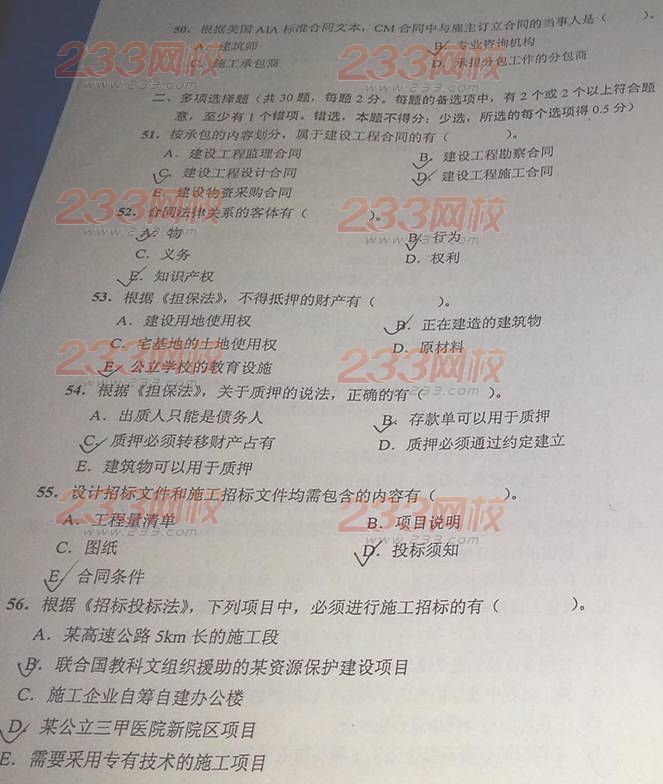 50. 根据美国 AIA 标准合同文本，CM 合同中与雇主订立合同的当事人是（ ）。
A. 建筑师 B. 专业咨询机构
C. 施工承包商 D. 承担分包工作的分包商
二、多项选择题（共 30 题，每题 2 分。每题的备选项中，有 2 个或 2 个以上符合题
意，至少有 1 个错项。错选，本题不得分；少选，所选的每个选项得 0.5 分）
51. 按承包的内容划分，属于建设工程合同的有（ ）。
A. 建设工程监理合同 B. 建设工程勘察合同
C. 建设工程设计合同 D. 建设工程施工合同
E. 建设物资采购合同
52. 合同法律关系的客体有（ ）。
A. 物 B. 行为
C. 义务 D. 权利
E. 知识产权
53. 根据《担保法》，不得抵押的财产有（ ）。
A. 建设用地使用权 B. 正在建造的建筑物
C. 宅基地的土地使用权 D. 原材料
E. 公立学校的教育设施
54. 根据《担保法》，关于质押的说法，正确的有（ ）。
A. 出质人只能是债务人 B. 存款单可以用于质押
C. 质押必须转移财产占有 D. 质押必须通过约定建立
E. 建筑物可以用于质押
55. 设计招标文件和施工招标文件均需包含的内容有（ ）。
A. 工程量清单 B. 项目说明
C. 图纸 D. 投标须知
E. 合同条件
56. 根据《招标投标法》，下列项目中，必须进行施工招标的有（ ）。
A. 某高速公路 5km 长的施工段
B. 联合国教科文组织援助的某资源保护建设项目
C. 施工企业自筹自建办公楼
D. 某公立三甲医院新院区项目
E. 需要采用专有技术的施工项目
233网校
www.233.com
233网校
www.233.com
233网校
www.233.com
233网校
www.233.com
233网校
www.233.com
233网校
www.233.com
233网校
www.233.com
233网校
www.233.com